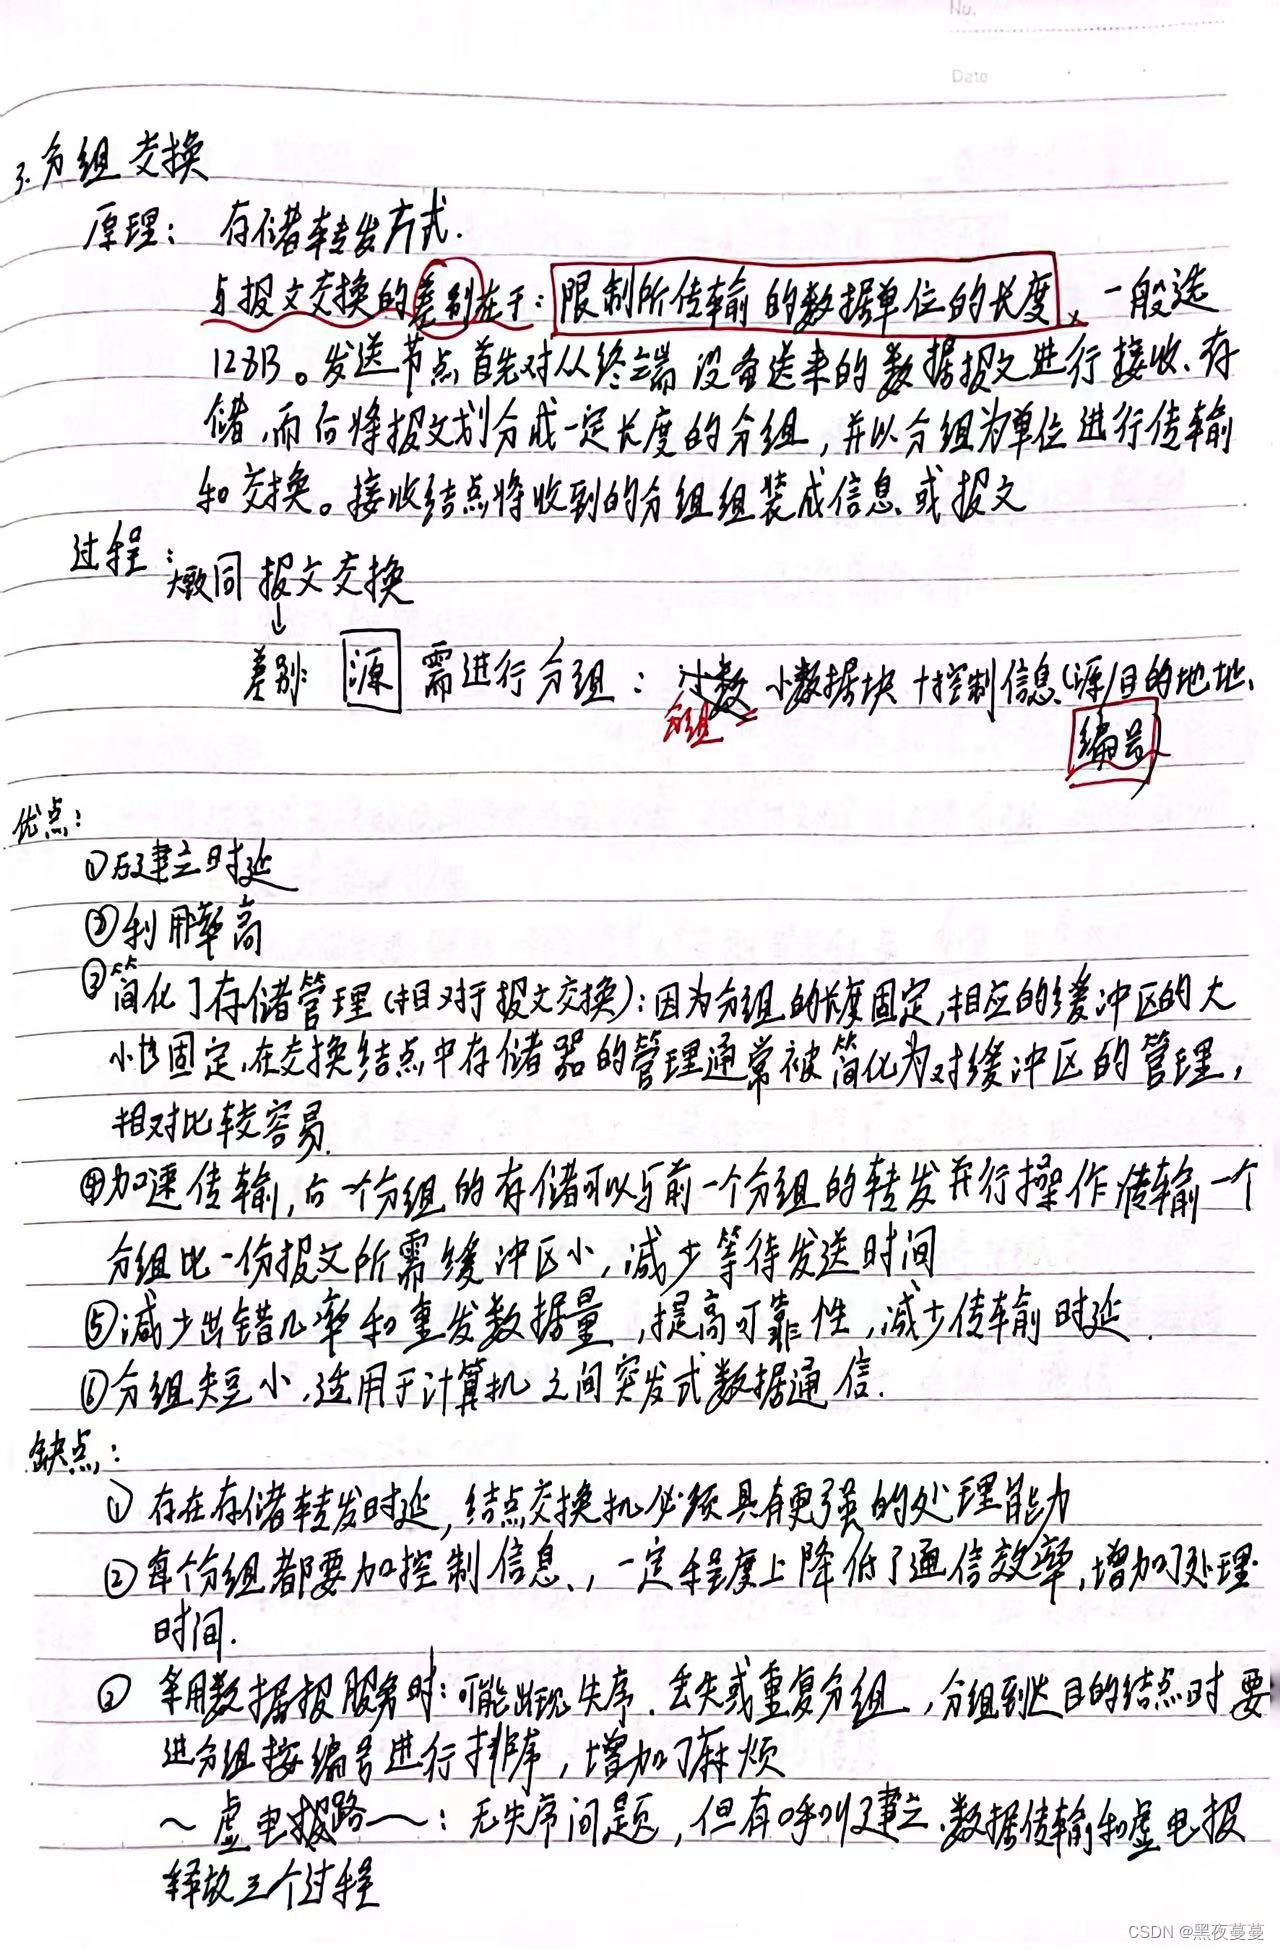 No.
Date
3.分组交换
原理：存储转发方式.
与报文交换的差别在于：限制所传输的数据单位的长度、一般选
128B。发送节点首先对从终端设备送来的数据报文进行接收、存
储，而后将报文划分成一定长度的分组，并以分组为单位进行传输
和交换。接收结点将收到的分组组装成信息或报文
过程：
大致同报文交换
↓
差别：源 需进行分组： 小数据块+控制信息(源/目的地址、
分组=
编号)
优点：
①无建立时延
②利用率高
③简化了存储管理(相对于报文交换)：因为分组的长度固定,相应的缓冲区的大
小也固定,在交换结点中存储器的管理通常被简化为对缓冲区的管理，
相对比较容易.
④加速传输,后一个分组的存储可以与前一个分组的转发并行操作.传输一个
分组比一份报文所需缓冲区小,减少等待发送时间
⑤减少出错几率和重发数据量,提高可靠性,减少传输时延.
⑥分组短小,适用于计算机之间突发式数据通信.
缺点：
①存在存储转发时延,结点交换机必须具有更强的处理能力
②每个分组都要加控制信息,一定程度上降低了通信效率,增加了处理
时间.
③采用数据报服务时：可能出现失序.丢失或重复分组,分组到达目的结点时要
进分组按编号进行排序,增加了麻烦
～虚电路～：无失序问题,但有呼叫建立.数据传输和虚电报
释放三个过程
CSDN @黑夜蔓蔓